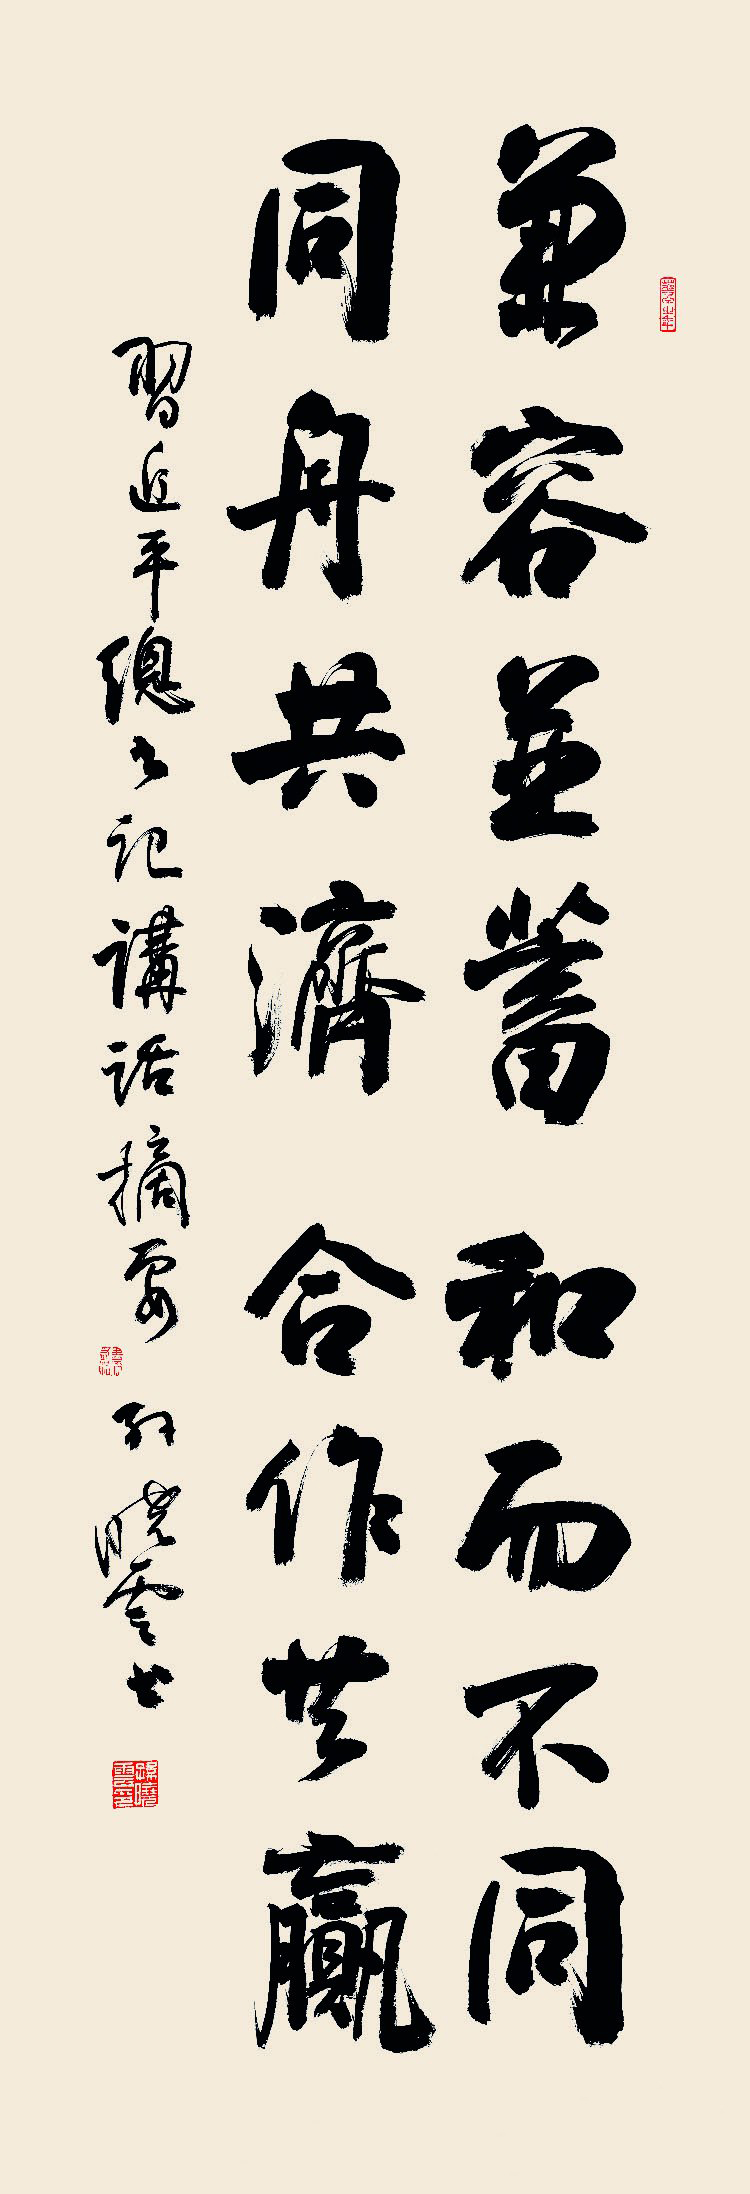 兼容並蓄 和而不同
同舟共濟 合作共贏
習近平總書記講話摘要 孙曉雲书